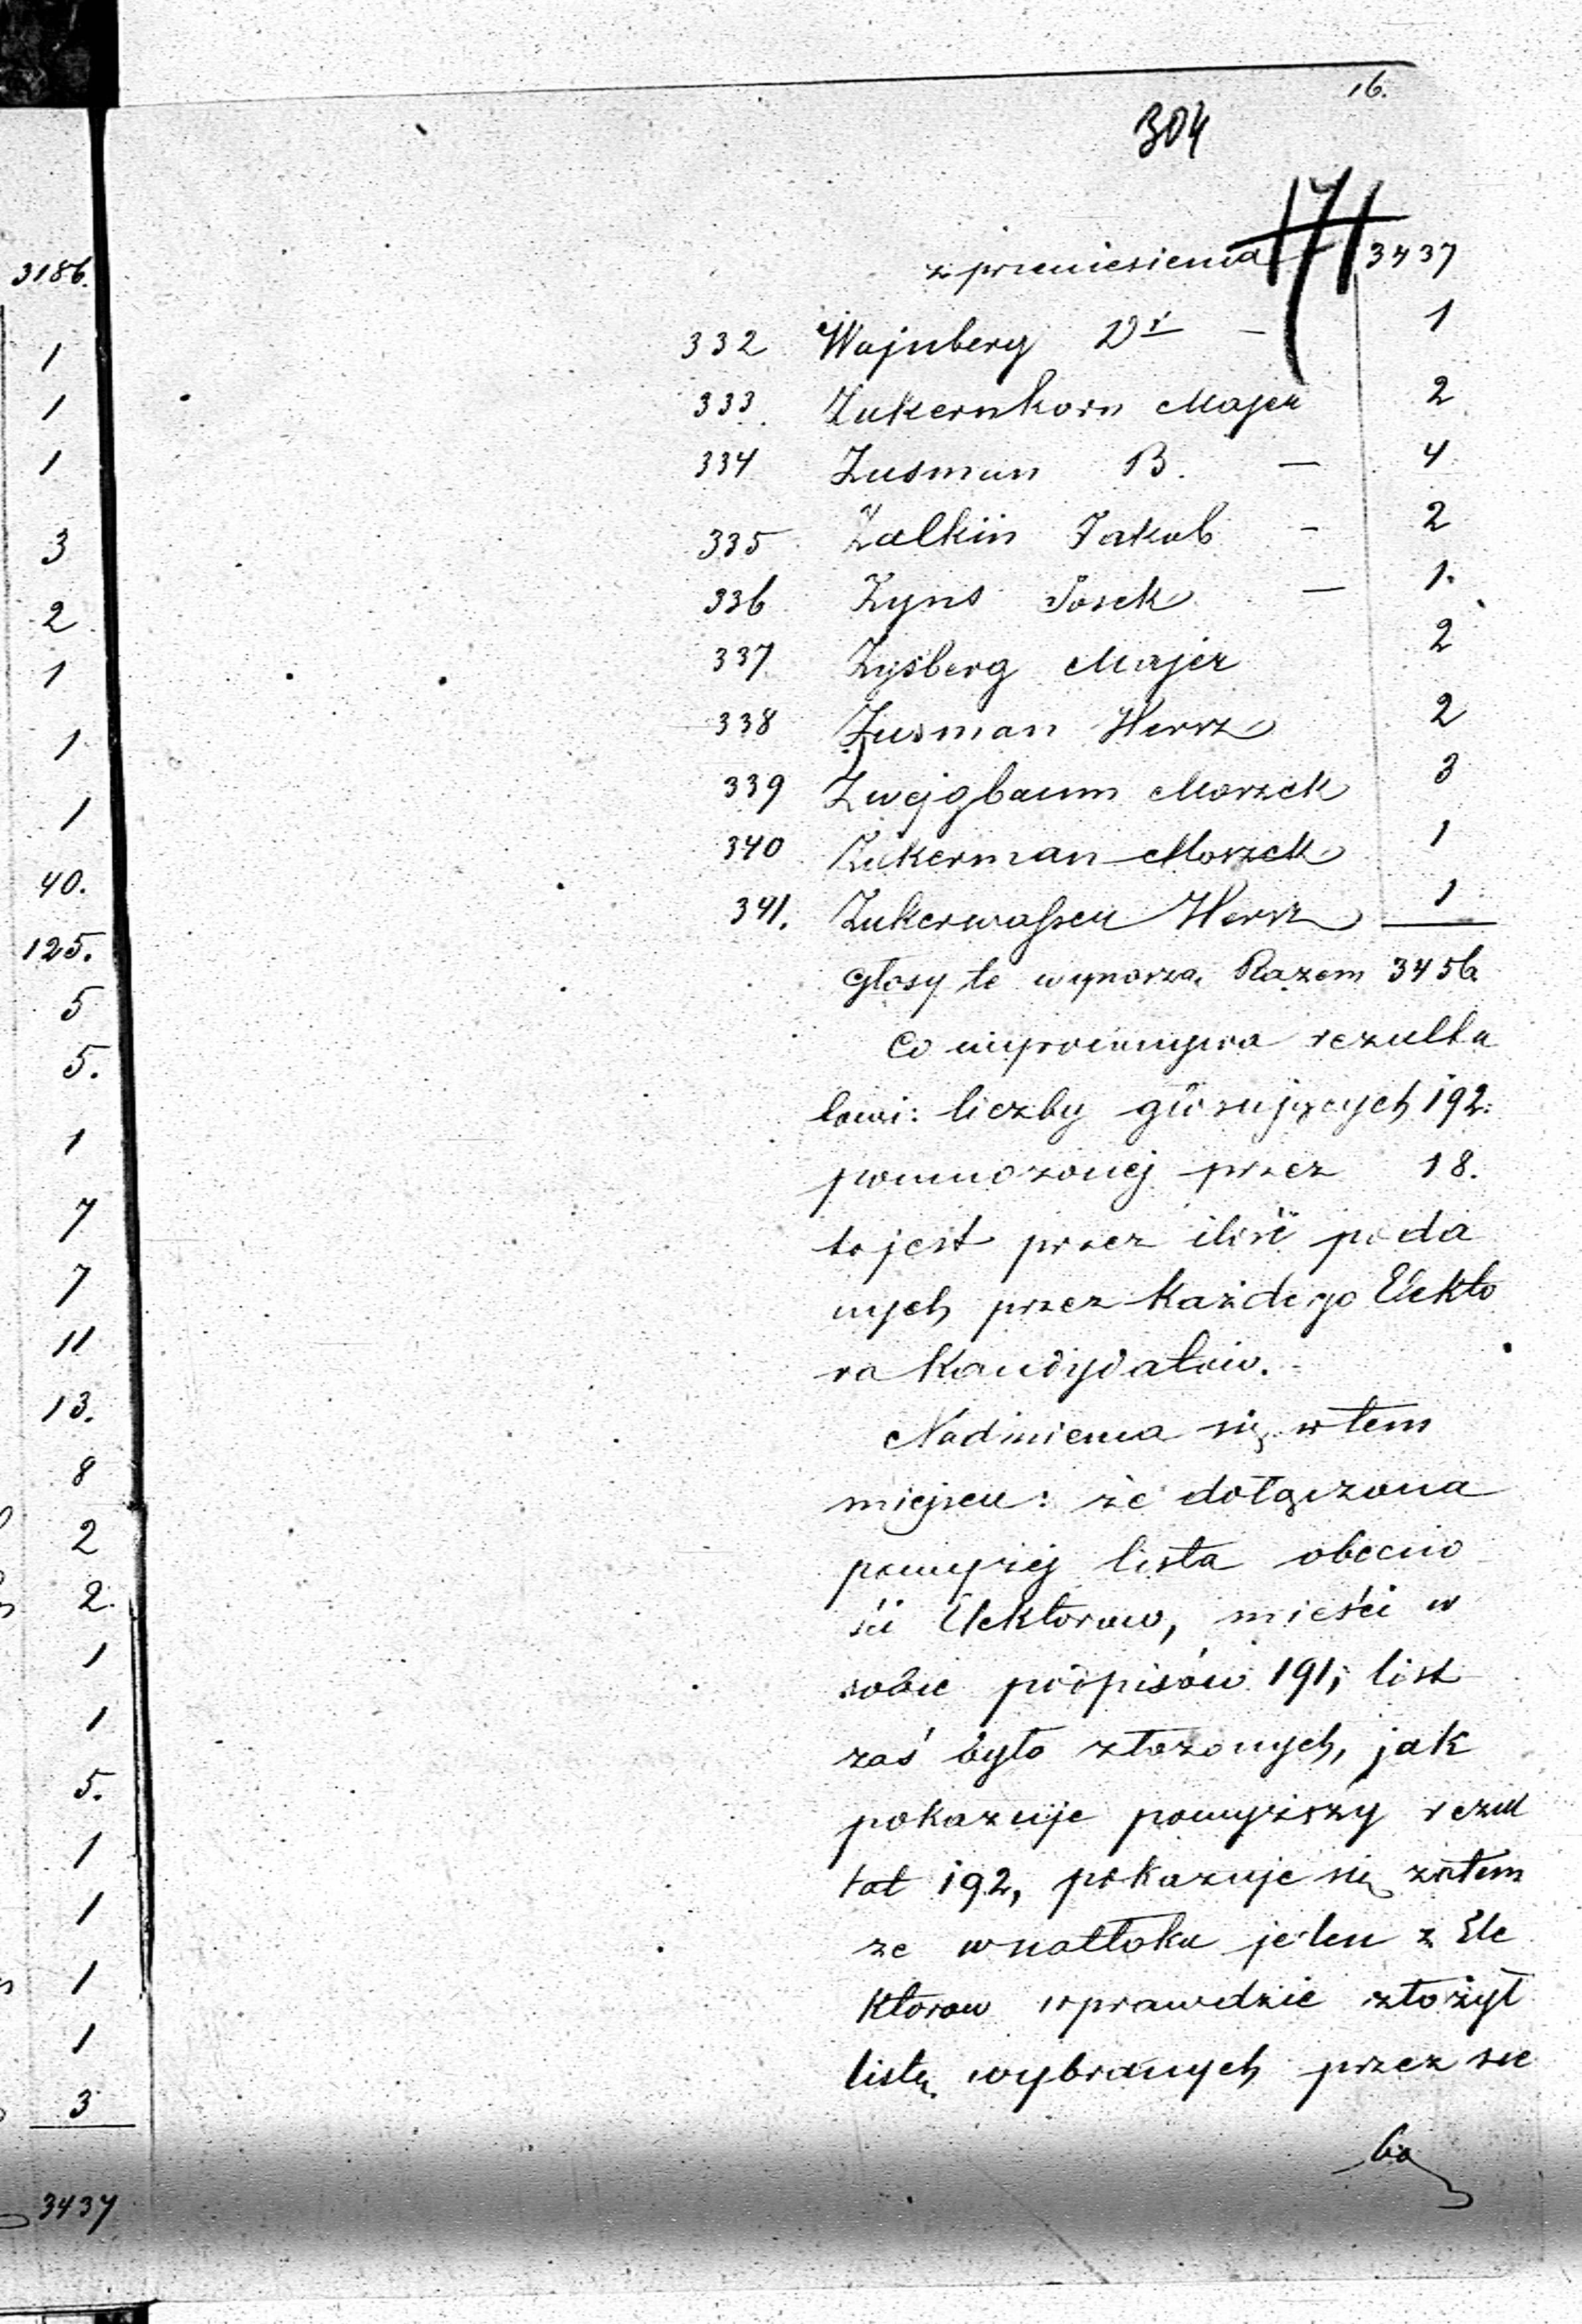 16.
304
171
z przeniesienia 3437
332 Wajnberg Dr – 1
333. Zukernkorn Majer 2
334 Zusman B. – 4
335 Zalkin Jakob – 2
336 Zyns Josek – 1.
337 Zysberg Majer 2
338 Zusman Hersz 2
339 Zwejgbaum Moszek 3
340 Zukerman Moszek 1
341. Zukerwasser Hersz 1
Głosy te wynoszą Razem 3456
Co wyrównywa rezulta
towi: liczby głosujących 192.
pomnożonej przez 18.
to jest przez ilość poda
nych przez każdego Elekto
ra Kandydatów.
Nadmienia się w tem
miejscu: że dołączona
powyżej lista obecno
ści Elektorow, mieści w
sobie podpisów 191; list
zaś było złożonych, jak
pokazuje powyższy rezul
tat 192, pokazuje się zatem
że w natłoku jeden z Ele
ktorow wprawdzie złożył
listę wybranych przez sie
bą
3186.
1
1
1
3
2
1
1
1
40.
125.
5
5.
1
7
7
11
13.
8
2
2.
1
1
5.
1
1
1
1
3
3437